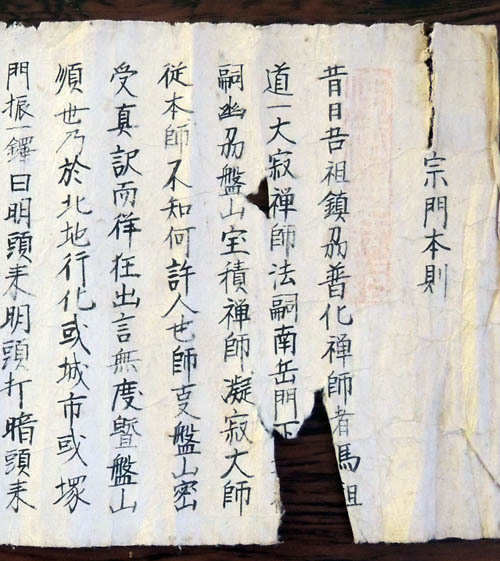 宗門本則
昔日吾祖鎮刕普化禅師者馬祖
道一大寂禅師法嗣南岳門下
嗣幽刕盤山宝積禅師凝寂大師
從本師不知何許人也師叓盤山密
受真訣而徉狂出言無度曁盤山
順世乃於北地行化或城市或塚
門振一鐸曰明頭来明頭打暗頭来